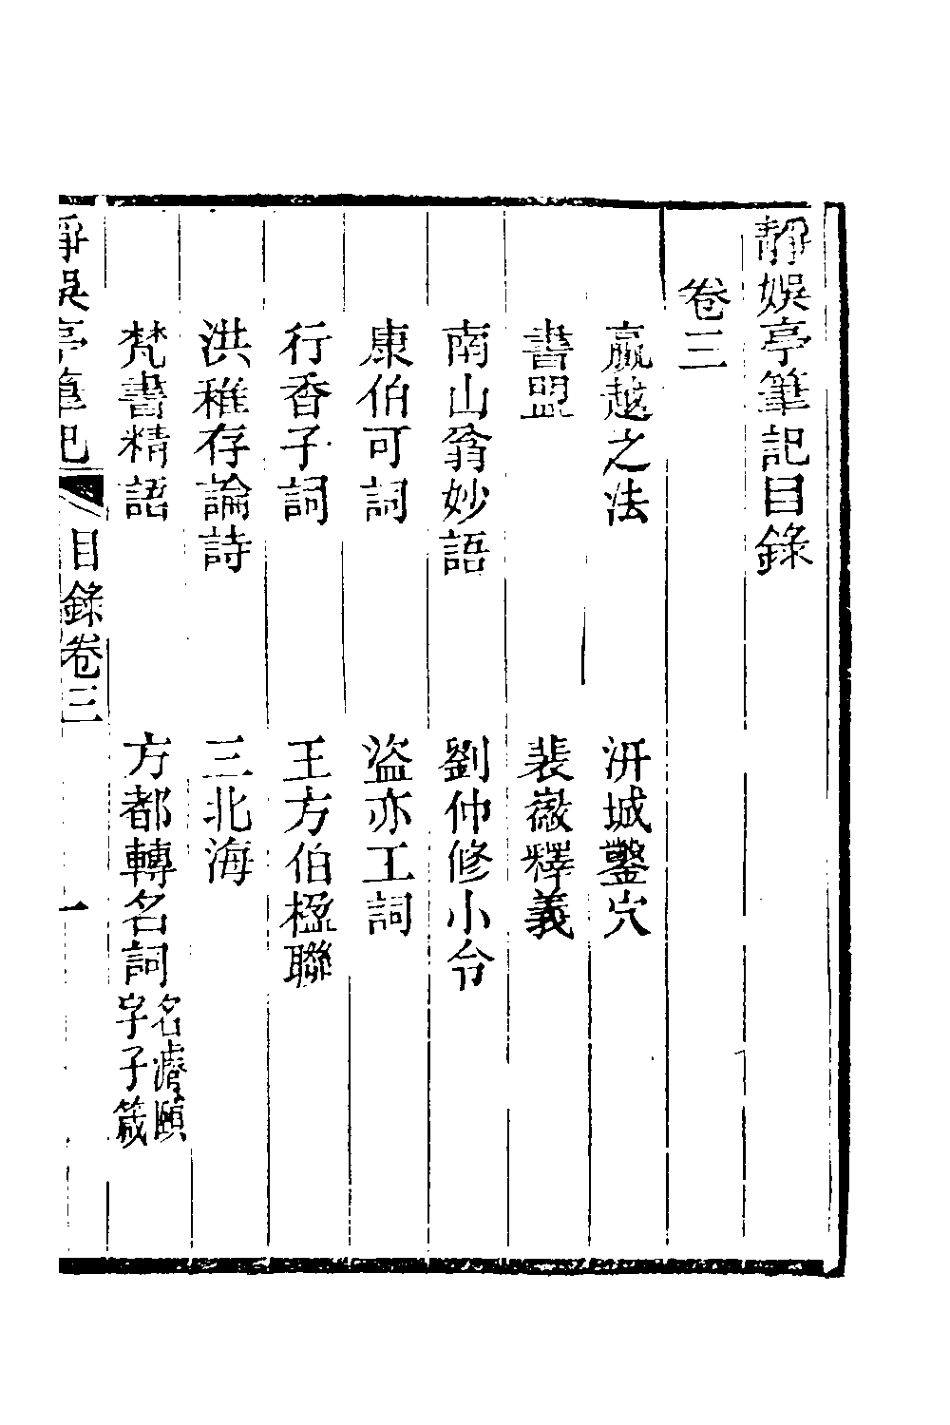 靜娛亭筆記目錄
卷三
嬴越之法　汧城鑿穴
書盟　裴嶽釋義
南山翁妙語　劉仲修小令
康伯可詞　盜亦工詞
行香子詞　王方伯楹聯
洪稚存論詩　三北海
梵書精語　方都轉名詞名濬頤字子箴
靜娛亭筆記　目錄卷三　一